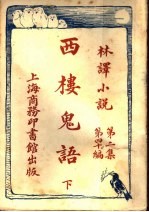 林譯小說
第二集
第四十編
西樓鬼語
下
上海商務印書館出版